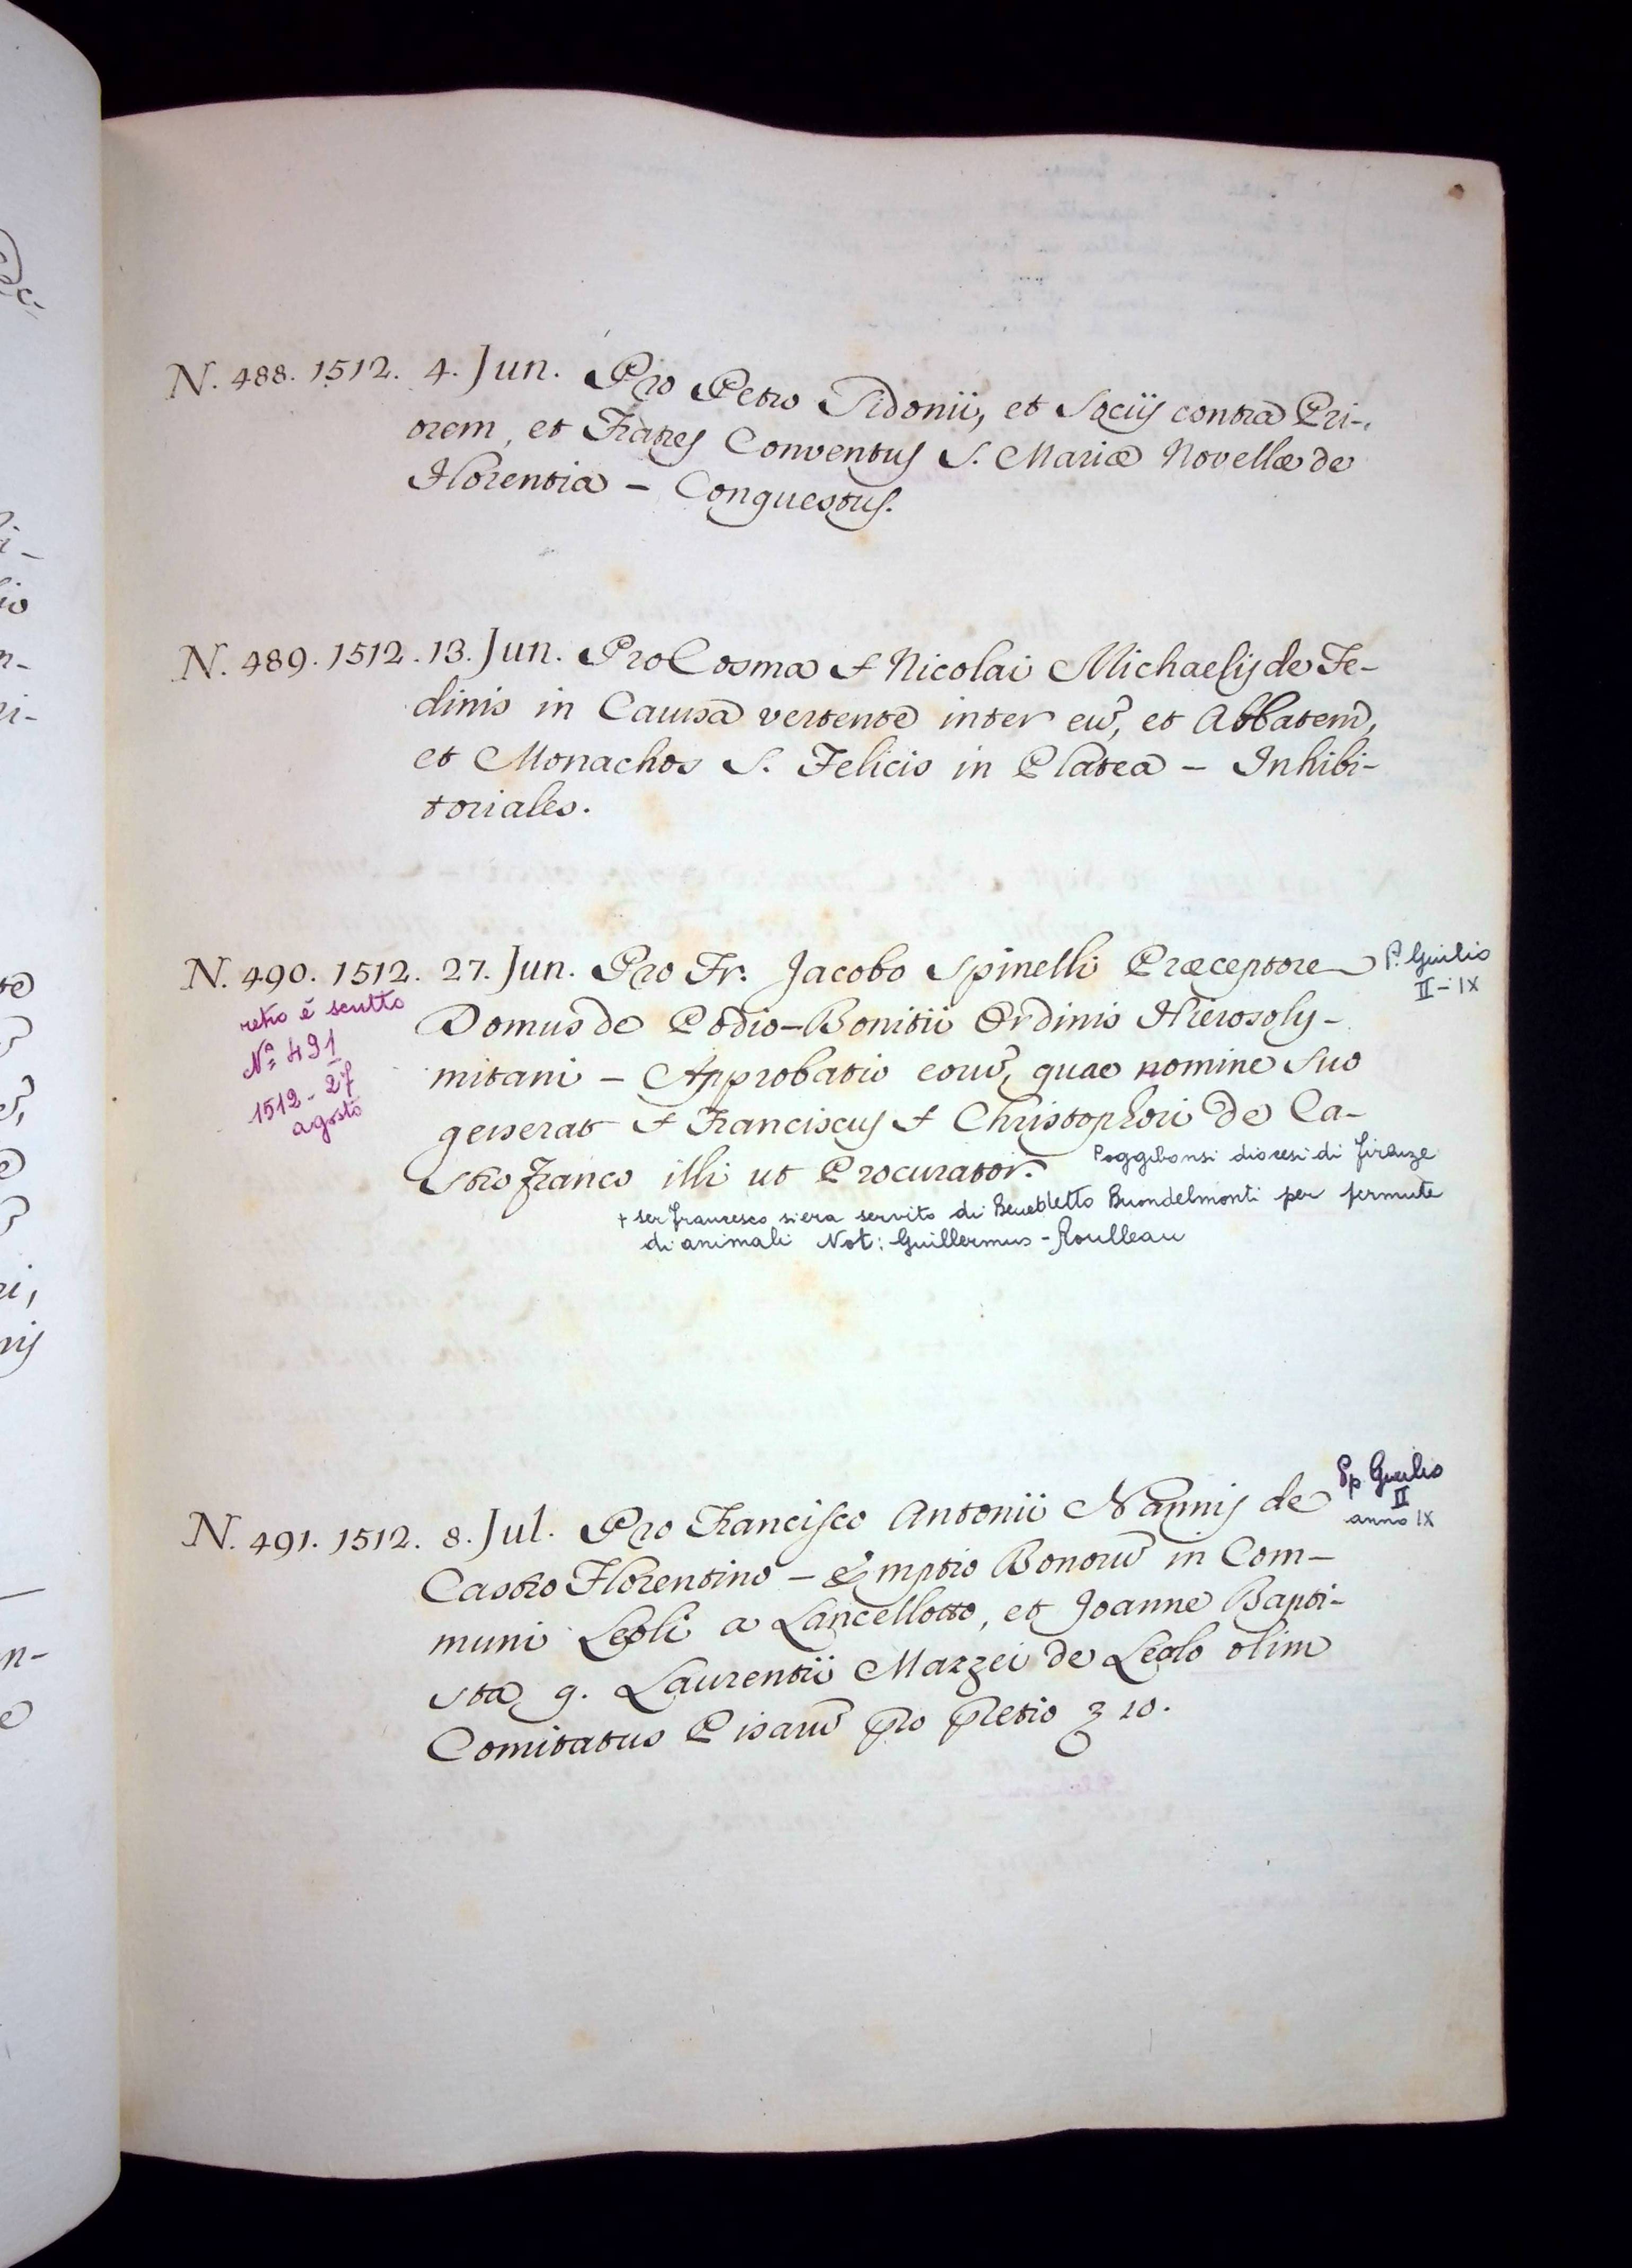 N. 488. 1512. 4. Jun. Pro Petro Sidonii, et Sociis contra Pri-
orem, et Fratres Conventus S. Mariæ Novellæ de
Florentia – Conquestus.
N. 489. 1512. 13. Jun. Pro Cosma Nicolai Michaelis de Fe-
dinis in Causa vertente inter eu͂, et Abbatem,
et Monachos S. Felicis in Platea – Inhibi-
toriales.
N. 490. 1512. 27. Jun. Pro Fr. Jacobo Spinelli Præceptore
P. Giulio
II – IX
retro è scritto
Nº 491
1512 - 27
agosto
Domus de Podio-Bonitii Ordinis Hierosoly-
mitani – Approbatio eoru͂, quae nomine suo
gesserat + Franciscus + Christophori de Ca-
stro franco illi ut Procurator.
Poggibonsi diocesi di Firenze
+ ser francesco si era servito di Benedetto Buondelmonti per permute
di animali Not: Guillermus - Roulleau
N. 491. 1512. 8. Jul. Pro Francisco Antonii Nannis de
Pp Giulio
II
anno IX
Castro Florentino – Emptio Bonoru͂ in Com-
muni Legli a Lancellotto, et Joanne Bapti-
sta q. Laurentii Mazzei de Leglo olim
Comitatus Pisaru͂ pro pretio 10.